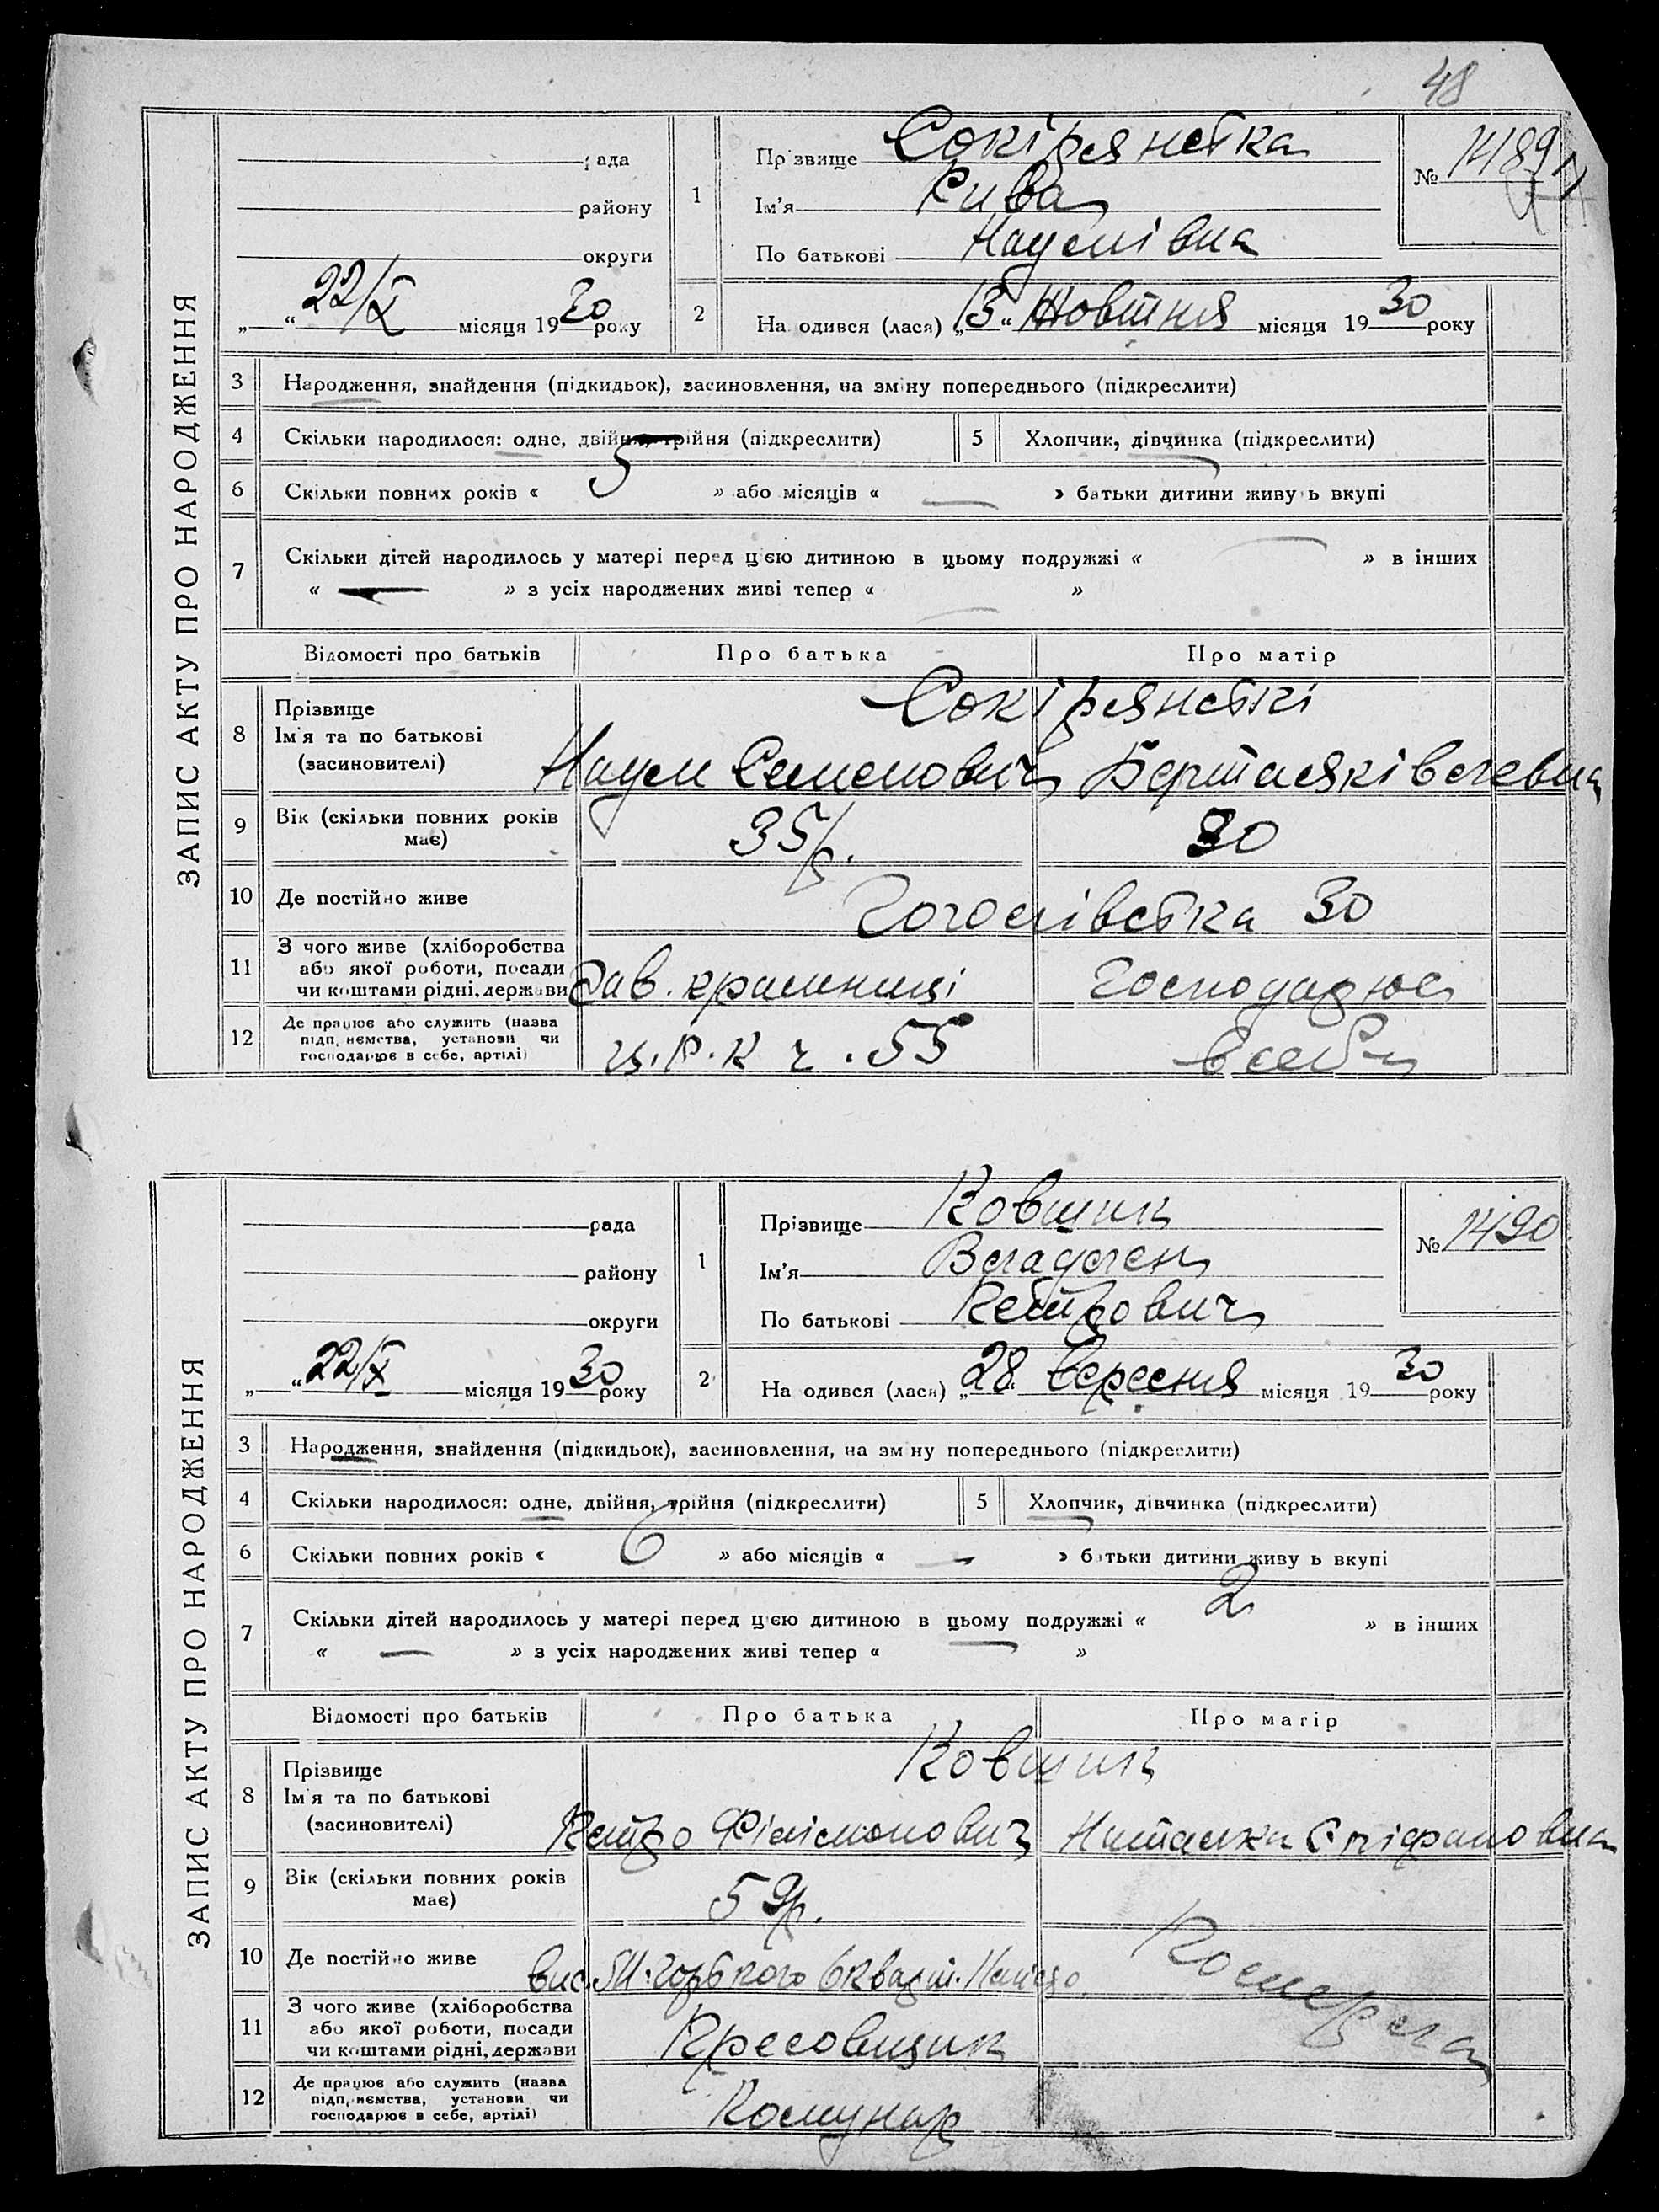 48
ЗАПИС АКТУ ПРО НАРОДЖЕННЯ
рада
району
округи
22/X місяця 1930 року
1
Прізвище Сокірянська
Ім'я Рива
По батькові Наумівна
№ 1489
2 Народився (лася) „13“ Жовтня місяця 1930 року
3 Народження, знайдення (підкидьок), засиновлення, на зміну попереднього (підкреслити)
4 Скільки народилося: одне, двійня, трійня (підкреслити) 5 Хлопчик, дівчинка (підкреслити)
6 Скільки повних років « 5 » або місяців « — » батьки дитини живуть вкупі
7 Скільки дітей народилось у матері перед цією дитиною в цьому подружжі « — » в інших
« — » з усіх народжених живі тепер « — »
Відомості про батьків Про батька Про матір
8 Прізвище
Ім'я та по батькові
(засиновителі)
Сокірянські
Наум Семенович
9 Вік (скільки повних років
має)
35 р. 30
10 Де постійно живе Гоголівська 30
11 З чого живе (хліборобства
або якої роботи, посади
чи коштами рідні, держави
Зав. крамниці Господарює
12 Де працює або служить (назва
підприємства, установи чи
господарює в себе, артілі)
Ц.Р.К ч. 55 в себе
ЗАПИС АКТУ ПРО НАРОДЖЕННЯ
рада
району
округи
22/X місяця 1930 року
1
Прізвище Ковшик
Ім'я Владлен
По батькові Петрович
№ 1490
2 Народився (лася) „28“ Вересня місяця 1930 року
3 Народження, знайдення (підкидьок), засиновлення, на зміну попереднього (підкреслити)
4 Скільки народилося: одне, двійня, трійня (підкреслити) 5 Хлопчик, дівчинка (підкреслити)
6 Скільки повних років « 6 » або місяців « — » батьки дитини живуть вкупі
7 Скільки дітей народилось у матері перед цією дитиною в цьому подружжі « 2 » в інших
« — » з усіх народжених живі тепер « »
Відомості про батьків Про батька Про матір
8 Прізвище
Ім'я та по батькові
(засиновителі)
Ковшик
Петро Філімонович Наталка Єпіфановна
9 Вік (скільки повних років
має)
10 Де постійно живе М. Горького
11 З чого живе (хліборобства
або якої роботи, посади
чи коштами рідні, держави
Пресовщик
Померла
12 Де працює або служить (назва
підприємства, установи чи
господарює в себе, артілі)
Комунар